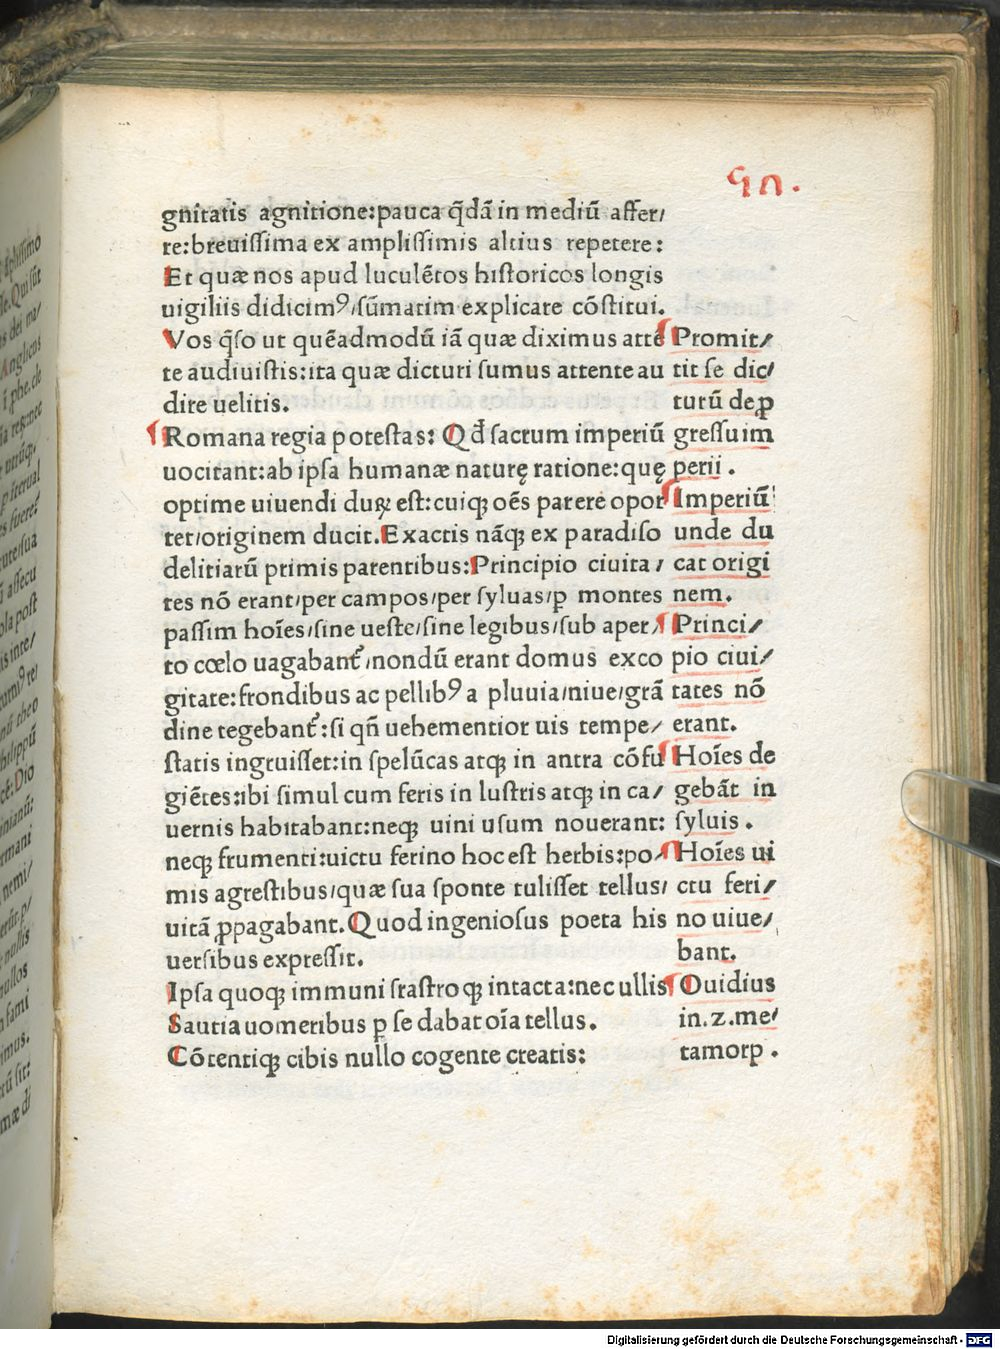 gnitatis agnitione:pauca q̄dā in mediū affer/
re:breuiſſima ex ampliſſimis altius repetere:
Et quæ nos apud luculētos hiſtoricos longis
uigiliis didicimꝰ/ſūmatim explicare cōſtitui.
Vos q̄ſo ut quēadmodū iā quæ diximus attē
te audiuiſtis:ita quæ dicturi ſumus attente au
dire uelitis.
Romana regia poteſtas: Qđ ſactum imperiū
uocitant:ab ipſa humanæ naturę ratione:quę
optime uiuendi duꝝ eſt:cuiqꝫ oēs parere opor
tet/originem ducit.Exactis nāqꝫ ex paradiſo
delitiarū primis parentibus:Principio ciuita/
tes nō erant/per campos/per ſyluas/p̱ montes
paſſim hoīes/ſine ueſte/ſine legibus/ſub aper/
to cœlo uagabant᷑/nondū erant domus exco
gitate:frondibus ac pellibꝰ a pluuia/niue/grā
dine tegebant᷑:ſi qñ uehementior uis tempe/
ſtatis ingruiſſet:in ſpelūcas atqꝫ in antra cōfu
giētes:ibi ſimul cum feris in luſtris atqꝫ in ca/
uernis habitabant:neqꝫ uini uſum nouerant:
neqꝫ frumenti:uictu ferino hoc eſt herbis:po/
mis agreſtibus/quæ ſua ſponte tuliſſet tellus/
uitā ꝓpagabant.Quod ingenioſus poeta his
uerſibus expreſſit.
Ipſa quoqꝫ immuniſ raſtroqꝫ intacta:nec ullis
Sautia uomeribus p̱ ſe dabat oīa tellus.
Cōtentiqꝫ cibis nullo cogente creatis:
Promit/
tit ſe dic/
turū de ꝓ
greſſu im
perii.
Imperiū
unde du
cat origi
nem.
Princi/
pio ciui/
tates nō
erant.
Hoīes de
gebāt in
ſyluis.
Hoīes ui
ctu feri/
no uiue/
bant.
Ouidius
in.z.me/
tamorp.
Digitalisierung gefördert durch die Deutsche Forschungsgemeinschaft - DFG